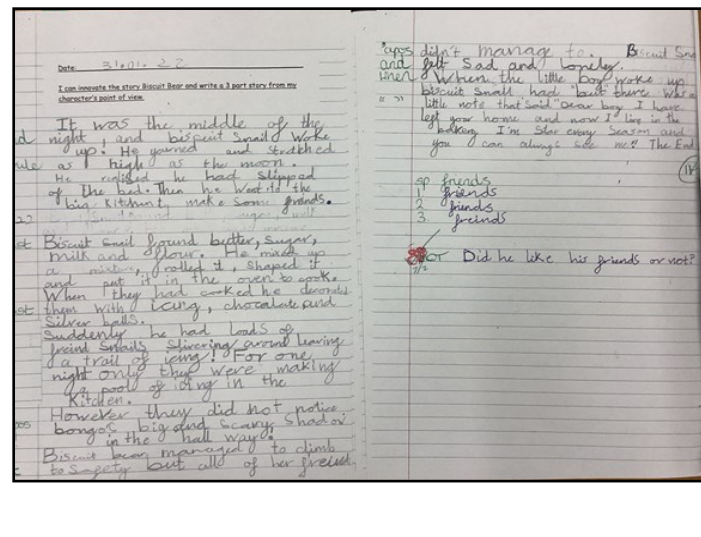 Date: 31.01.22
I can innovate the story Biscuit Bear and write a 3 part story from my
character's point of view.
It was the middle of the
night, and biscuit Snail woke
up. He yawned and stretched
as high as the moon.
He realised he had slipped
of the bed. Then he went to the
big Kitchent, make some friends.
Biscuit Snail found butter, sugar,
milk and flour. He mixed up
a mixture, rolled it, shaped it
and put it in the oven to cooke.
When they had cooked he
them with icing, chocolate and
Silver balls.
Suddenly he had Loads of
freind Snails Slivering around leaving
a trail of icing! For one
night only they were making
a pool of icing in the
Kitchen.
However they did not notice
bongos big and Scary Shadow
in the hall way.
Biscuit bear managed to climb
to Safety but all of her freind
apos didn't manage to. Biscuit
and felt Sad and lonely.
When the little boy woke up
biscuit Snail had "but" there was a
little note that Said "Dear boy I have
left your home and now I live in the
bakery I'm Star every Season and
you can always See me!" The End
sp friends
1 friends
2 friends
3. freinds
Did he like his friends or not?